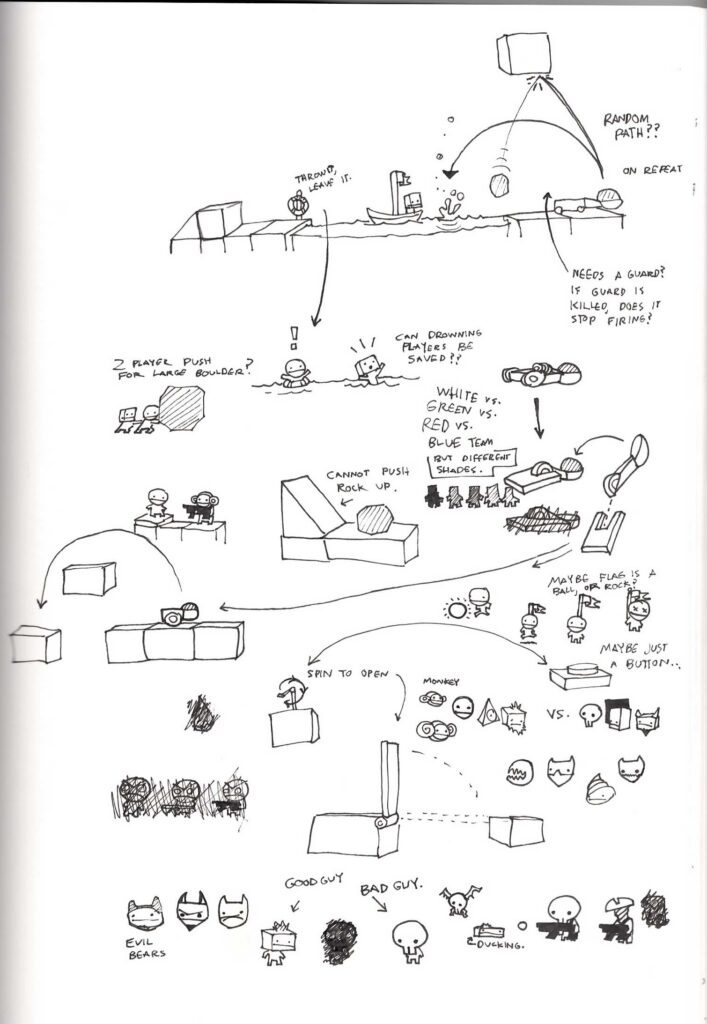 RANDOM
PATH??
ON REPEAT
THROW IT,
LEAVE IT.
NEEDS A GUARD?
IF GUARD IS
KILLED, DOES IT
STOP FIRING?
!
CAN DROWNING
PLAYERS BE
SAVED??
2 PLAYER PUSH
FOR LARGE BOULDER?
WHITE VS.
GREEN VS.
RED VS.
BLUE TEAM
BUT DIFFERENT
SHADES.
CANNOT PUSH
ROCK UP.
MAYBE FLAG IS A
BALL, OR ROCK?
MAYBE JUST
A BUTTON...
SPIN TO OPEN
MONKEY
VS.
GOOD GUY
BAD GUY.
EVIL
BEARS
DUCKING.